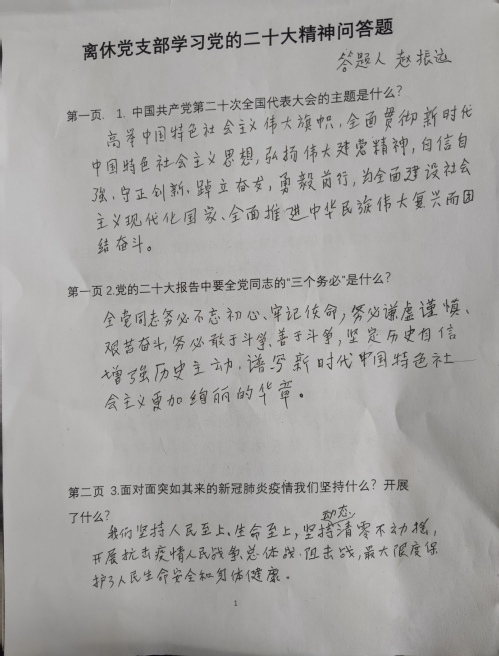 离休党支部学习党的二十大精神问答题
答题人 赵振远
第一页. 1. 中国共产党第二十次全国代表大会的主题是什么?
高举中国特色社会主义伟大旗帜,全面贯彻新时代
中国特色社会主义思想,弘扬伟大建党精神,自信自
强、守正创新、踔立奋发,勇毅前行,为全面建设社会
主义现代化国家、全面推进中华民族伟大复兴而团
结奋斗。
第一页 2.党的二十大报告中要全党同志的“三个务必”是什么?
全党同志务必不忘初心、牢记使命,务必谦虚谨慎、
艰苦奋斗,务必敢于斗争、善于斗争,坚定历史自信
增强历史主动,谱写新时代中国特色社
会主义更加绚丽的华章。
第二页 3.面对面突如其来的新冠肺炎疫情我们坚持什么?开展
了什么?
我们坚持人民至上、生命至上,坚持动态清零不动摇,
开展抗击疫情人民战争、总体战、阻击战,最大限度保
护了人民生命安全和身体健康。
1